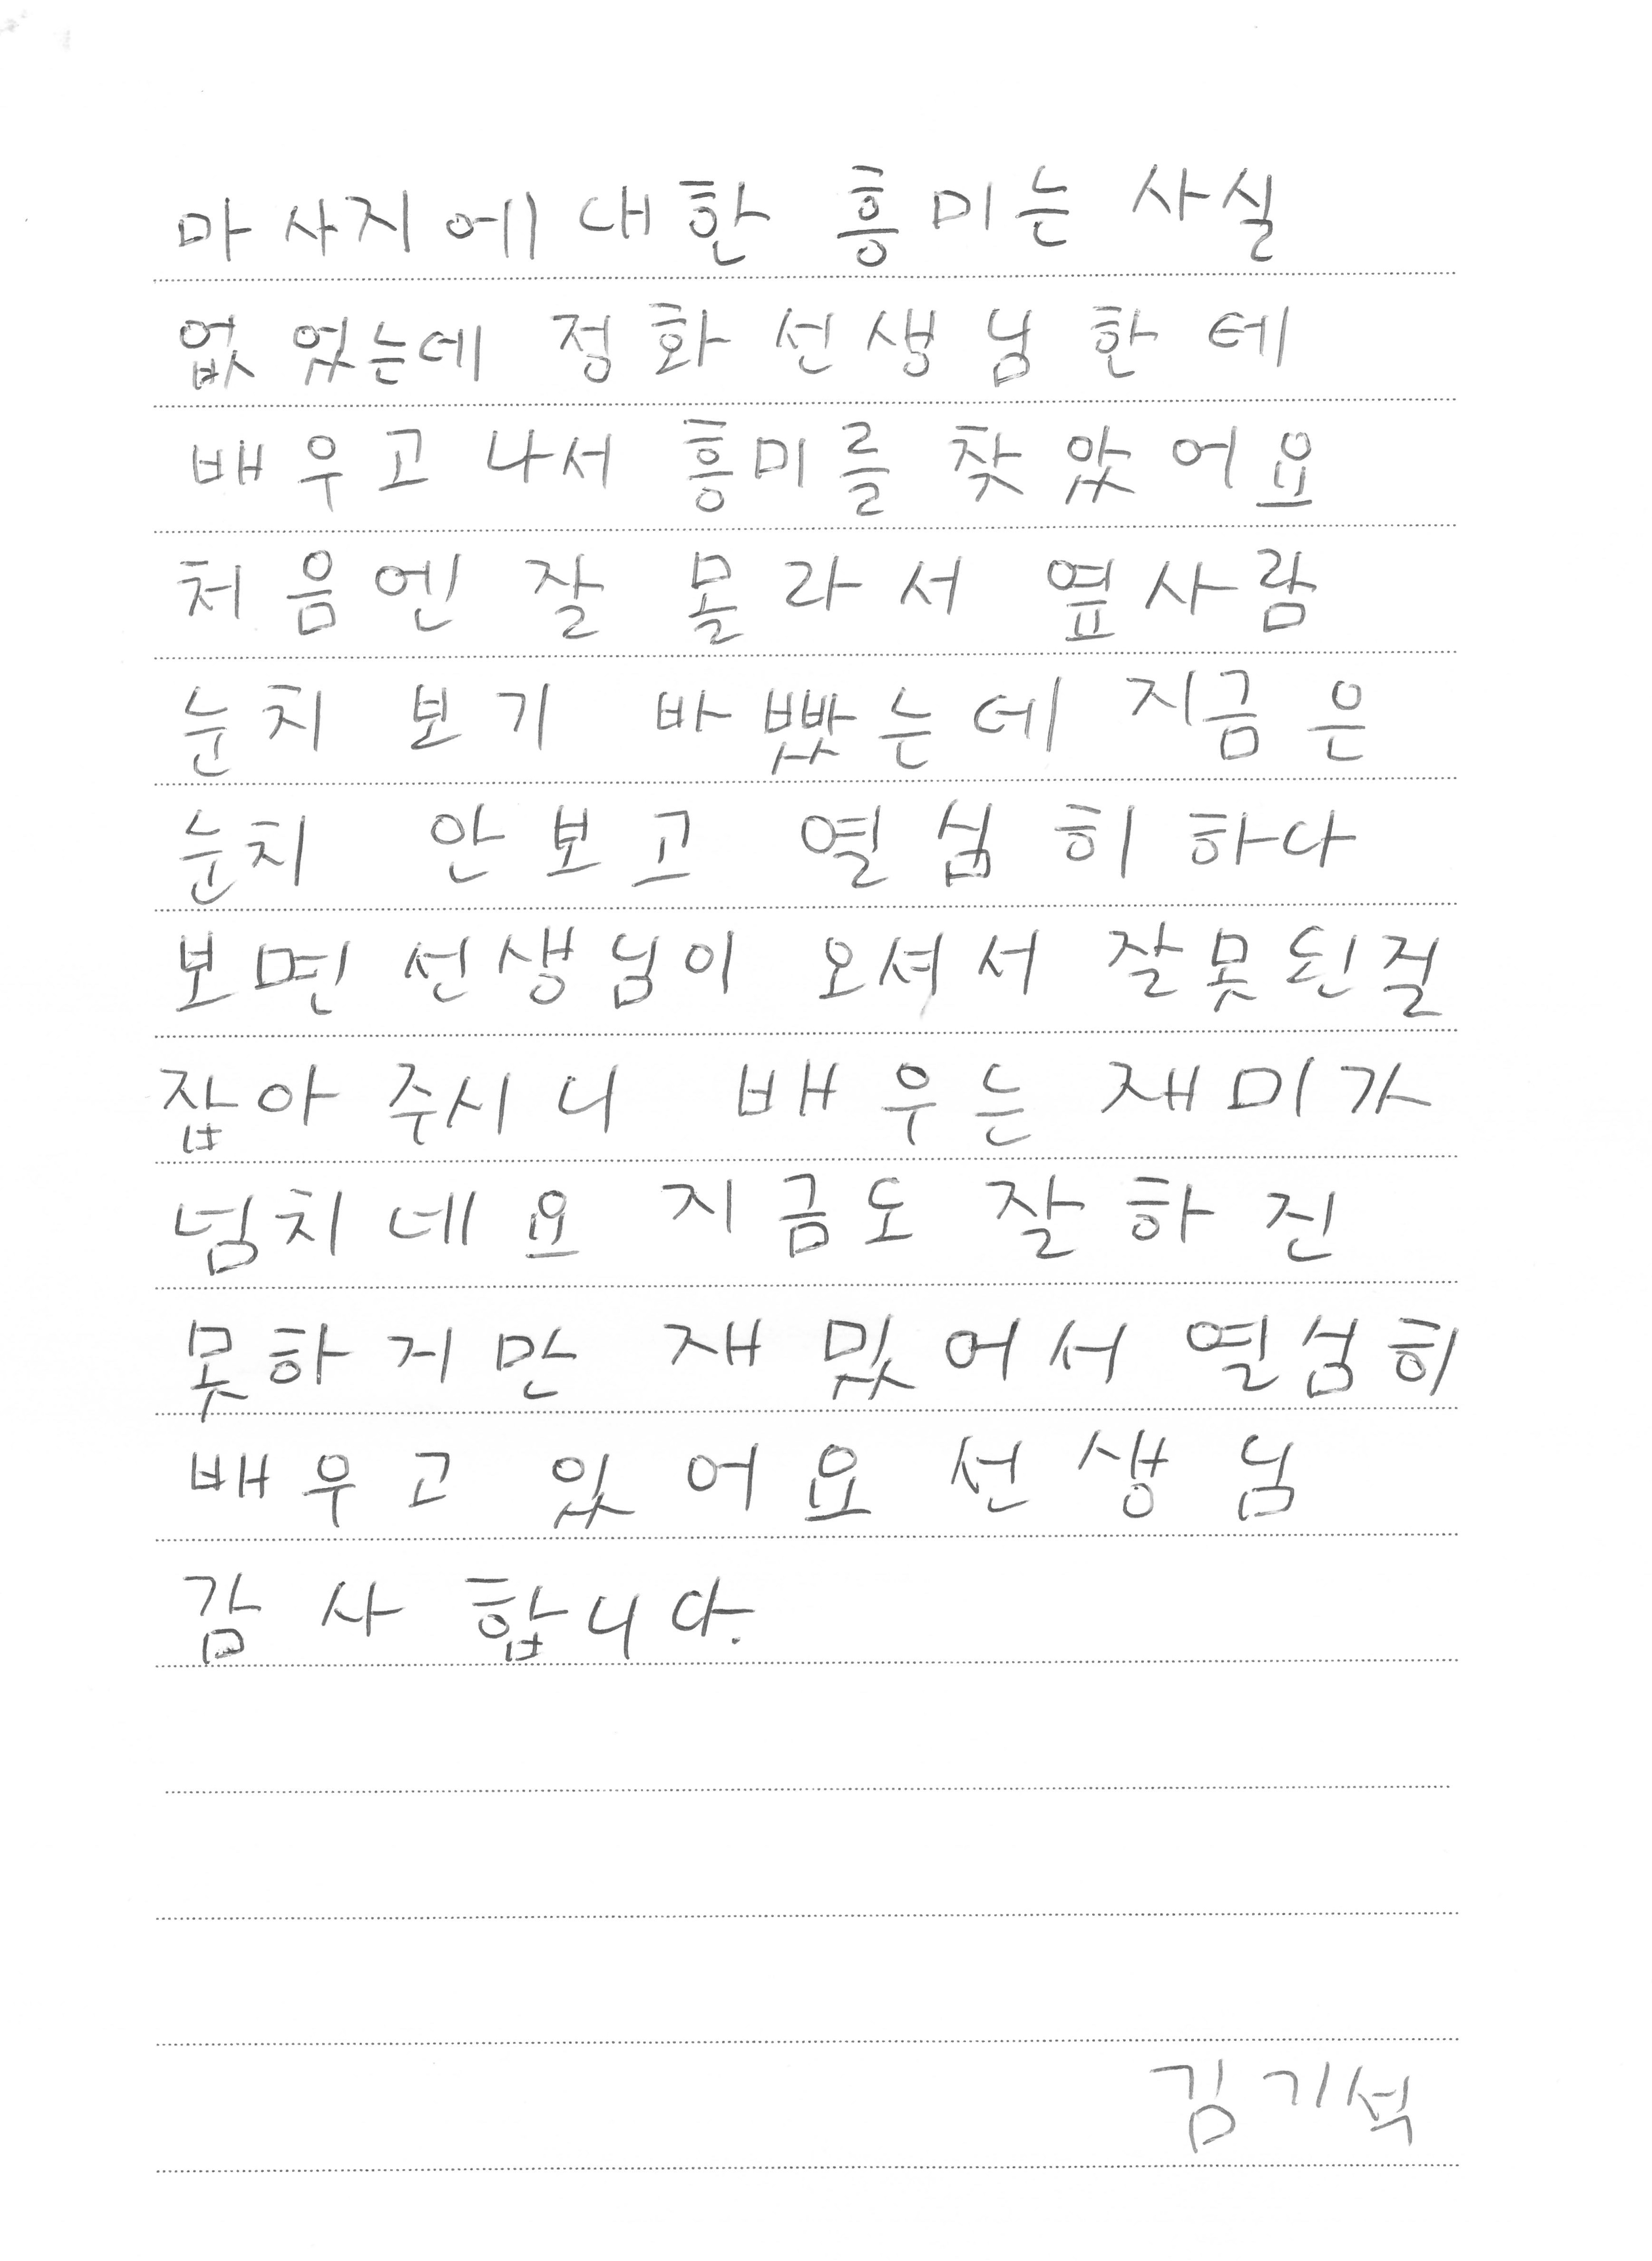 마사지에 대한 흥미는 사실
없었는데 정화 선생님 한테
배우고 나서 흥미를 찾았어요
처음엔 잘 몰라서 옆사람
눈치 보기 바빴는데 지금은
눈치 안보고 열심히 하다
보면 선생님이 오셔서 잘못된걸
잡아 주시니 배우는 재미가
넘치네요 지금도 잘하진
못하지만 재밌어서 열심히
배우고 있어요 선생님
감사합니다.
김기석